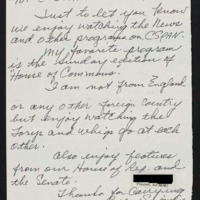 Just to let you know
we enjoy watching the News
and other programs on CSPAN.
My favorite program
is the Sunday edition of
House of Commons.
I am not from England
or any other foreign country
but enjoy watching the
Torys and whigs go at each
other.
Also enjoy features
from our House of Rep. and
the Senate.
Thanks for carrying